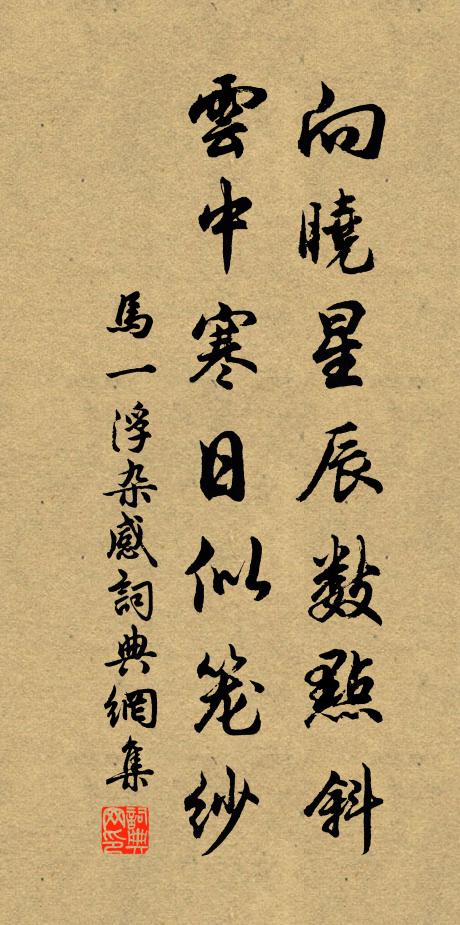 向曉星辰數點斜
雲中寒日似笼紗
馬一浮杂感詞典網集
詞典网印